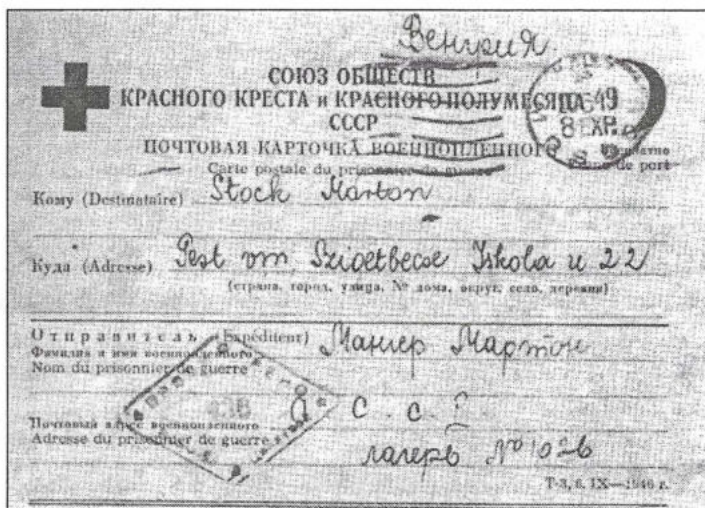 Венгрия.
СОЮЗ ОБЩЕСТВ
КРАСНОГО КРЕСТА и КРАСНОГО ПОЛУМЕСЯЦА
СССР
49
ПОЧТОВАЯ КАРТОЧКА ВОЕННОПЛЕННОГО Бесплатно
Carte postale du prisonnier de guerre Franc de port
Кому (Destinataire) Stock Márton
Куда (Adresse) Pest vm, Szigetbecse Iskola u 22
(страна, город, улица, № дома, округ, село, деревня)
Отправитель (Expéditeur) Манцер Мартон
Фамилия и имя военнопленного
Nom du prisonnier de guerre
С. С.
Почтовый адрес военнопленного
Adresse du prisonnier de guerre
лагерь №
Т-3, 6. IX—1946 г.